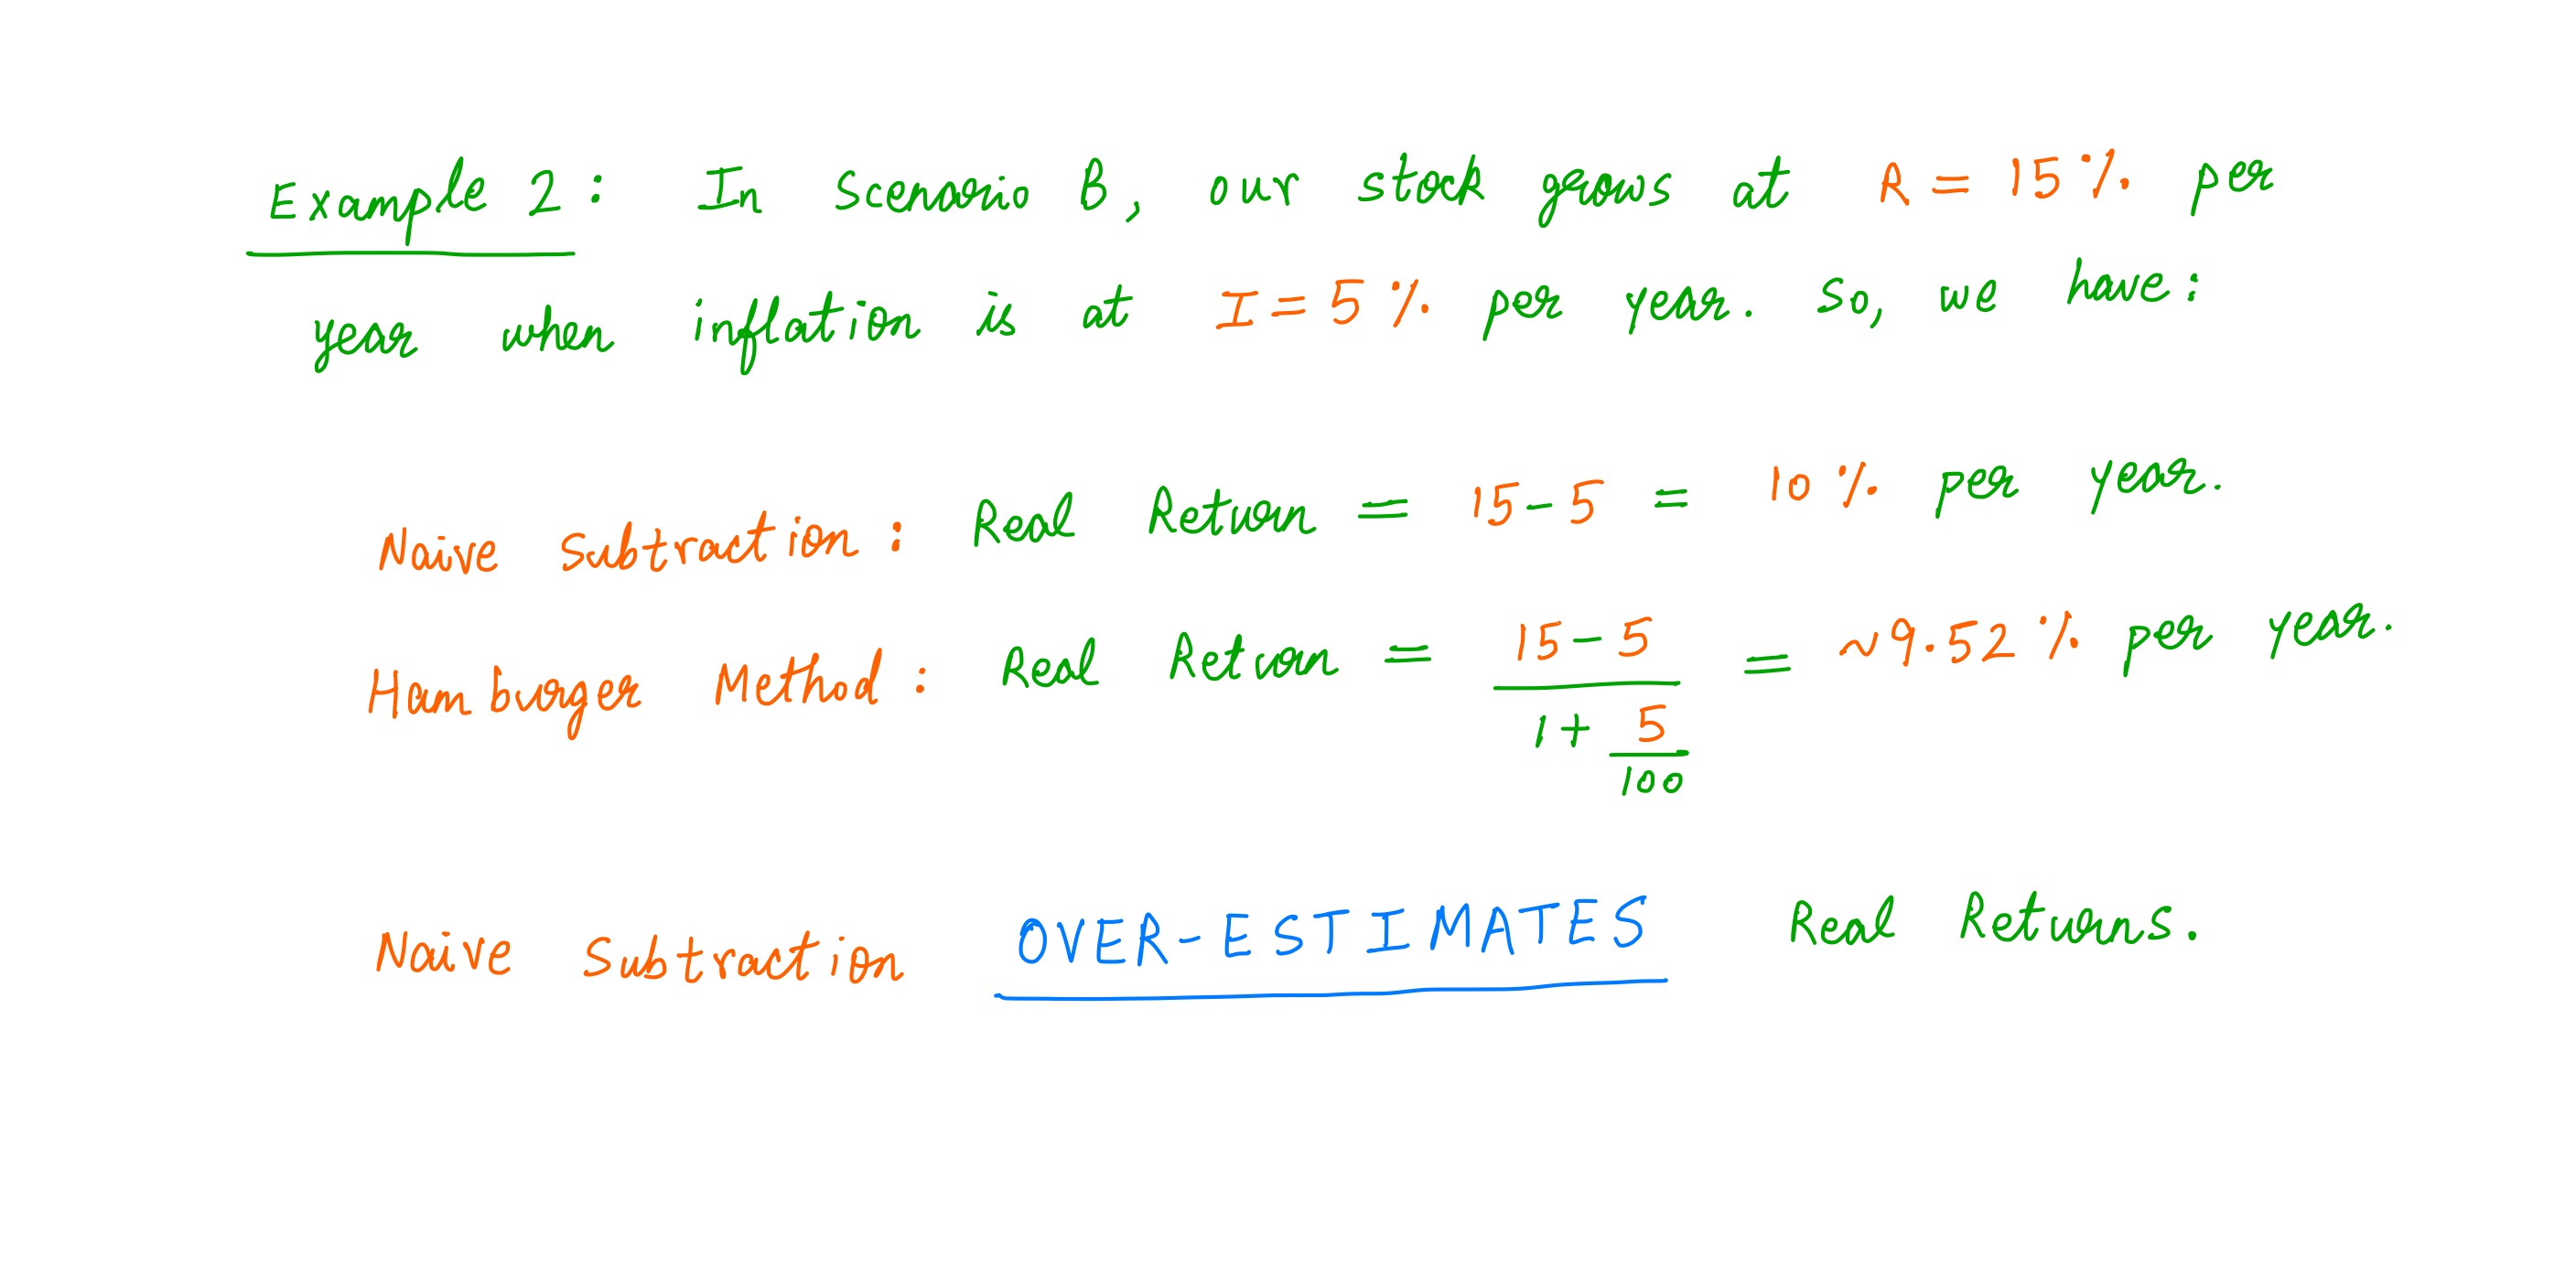 Example 2: In Scenario B, our stock grows at R = 15% per
year when inflation is at I = 5% per year. So, we have:
Naive Subtraction: Real Return = 15-5 = 10% per year.
Hamburger Method: Real Return = (15-5)/(1+5/100) = ~9.52% per year.
Naive Subtraction OVER-ESTIMATES Real Returns.